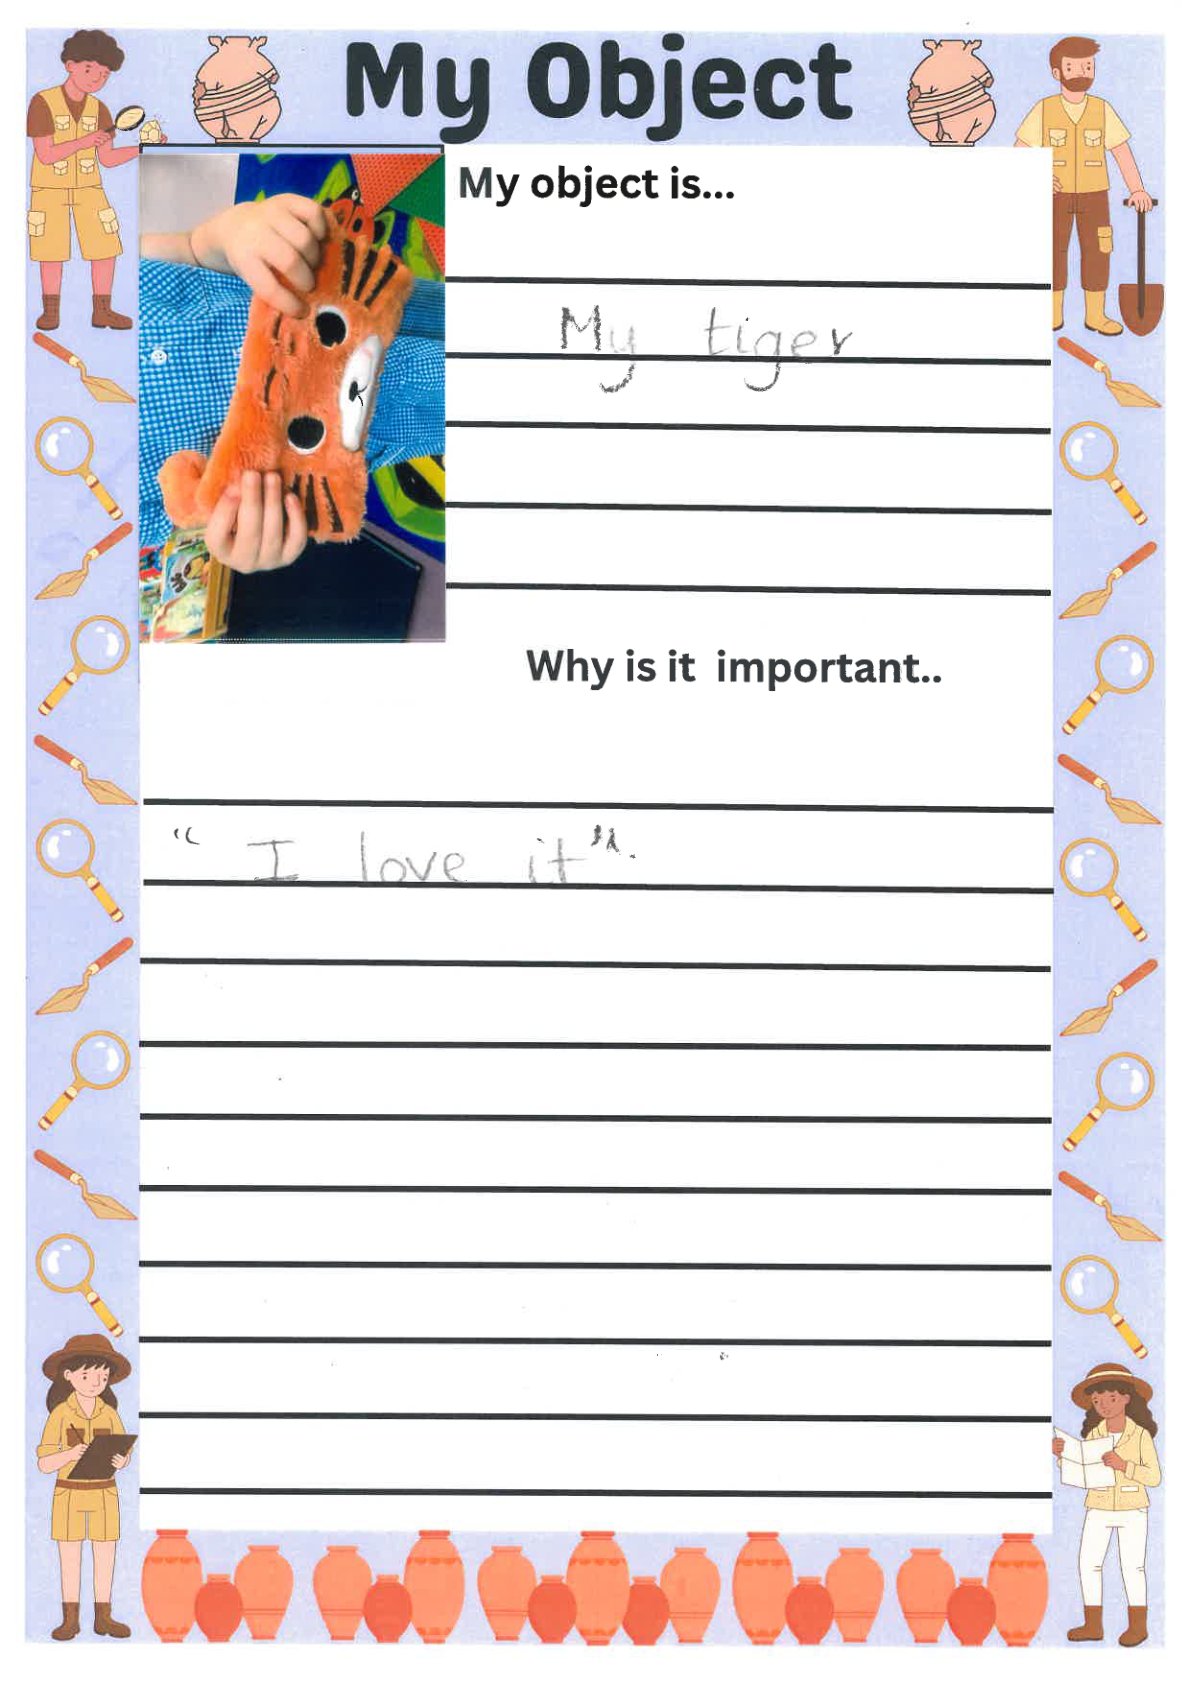 My Object
My object is...
My tiger
Why is it important..
" I love it".